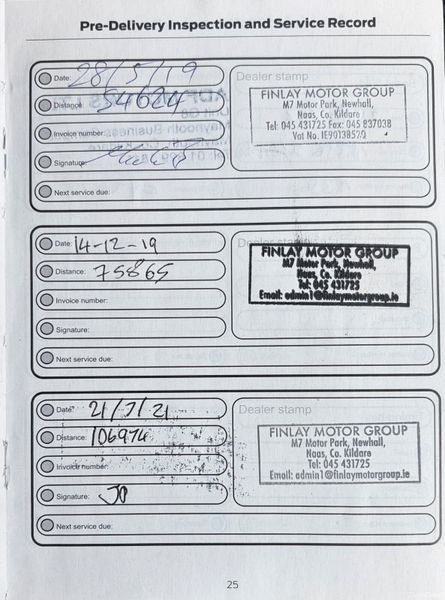 Pre-Delivery Inspection and Service Record
Date: 28/5/19
Distance: 54624
Invoice number:
Signature:
Next service due:
Dealer stamp
FINLAY MOTOR GROUP
M7 Motor Park, Newhall,
Naas, Co. Kildare
Tel: 045 431725 Fax: 045 837038
Vat No. IE9013852Q
Date: 14-12-19
Distance: 75865
Invoice number:
Signature:
Next service due:
Dealer stamp
FINLAY MOTOR GROUP
M7 Motor Park, Newhall,
Naas, Co. Kildare
Tel: 045 431725
Email: admin1@finlaymotorgroup.ie
Date: 21/7/21
Distance: 106974
Invoice number:
Signature: JO
Next service due:
Dealer stamp
FINLAY MOTOR GROUP
M7 Motor Park, Newhall,
Naas, Co. Kildare
Tel: 045 431725
Email: admin1@finlaymotorgroup.ie
25